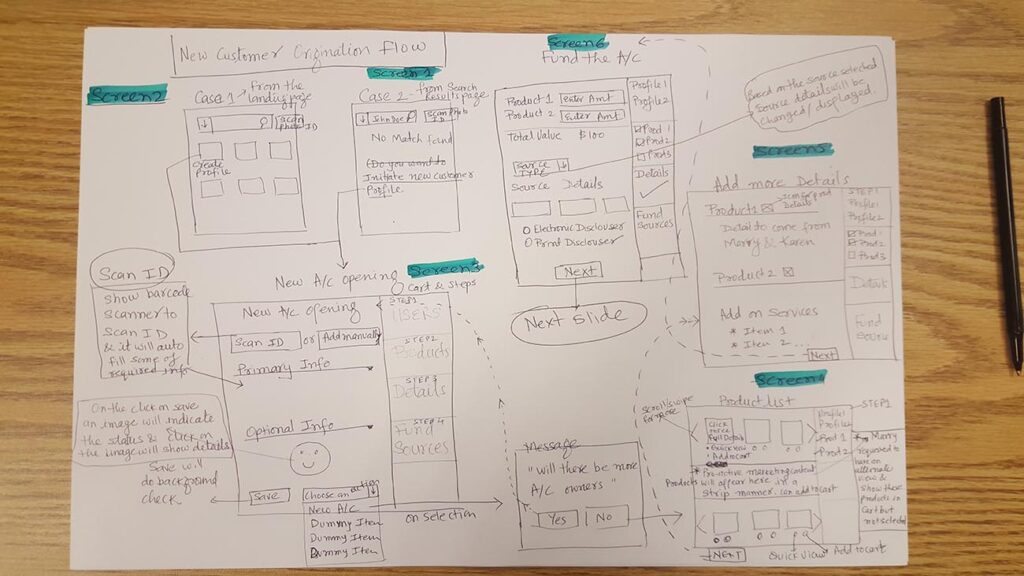 New Customer Origination Flow
Screen 2
Case 1 → From the
landing page
↓
scan
photo ID
Create
Profile
Case 2 - From Search
Results page
↓ John Doe
Scan
ID
No Match found
(Do you want to
Initiate new customer
Profile.
Screen 6
Fund the A/C
Product 1 Enter Amt
Product 2 Enter Amt
Total Value $100
Source
TYPE ↓
Source Details
O Electronic Disclouser
O Print Disclouser
Next
Profile 1
Profile 2
Prod 1
Prod 2
Prod 3
Details
Fund
Sources
Next slide
Based on the source selected
source details will be
changed / displayed.
Screen 5
Add more Details
Product 1
Icon for prod
Details
Detail to come from
Marry & Karen
Product 2
Add on Services
* Item 1
* Item 2 ...
Next
STEP 1
Profile 1
Profile 2
Prod 1
Prod 2
Prod 3
Detail
Fund
Source
Scan ID
show barcode
scanner to
scan ID
& it will auto
fill some of
required info
Screen 3
New A/C opening
Cart & Steps
New A/C opening
Scan ID or Add manually
Primary Info
Optional Info
Save
Choose an action ↓
New A/C
Dummy Item
Dummy Item
Dummy Item
STEP 1
USERS
STEP 2
Products
STEP 3
Details
STEP 4
Fund
Sources
on selection
On the click on save
an image will indicate
the status & click on
the image will show details
Save will
do background
check
Message
"will there be more
A/C owners"
Yes No
Screen 4
Product list
Scroll/swipe
for more
Click
Full Details
Quick view
Add to cart
Profile 1
Profile 2
Prod 1
Prod 2
STEP 1
* Pro-active marketing content
Products will appear here in a
strip manner. can add to cart
* Marry
requested to
have an
alternate
view &
Show these
products in
Cart but
not selected
NEXT
Quick View
Add to cart